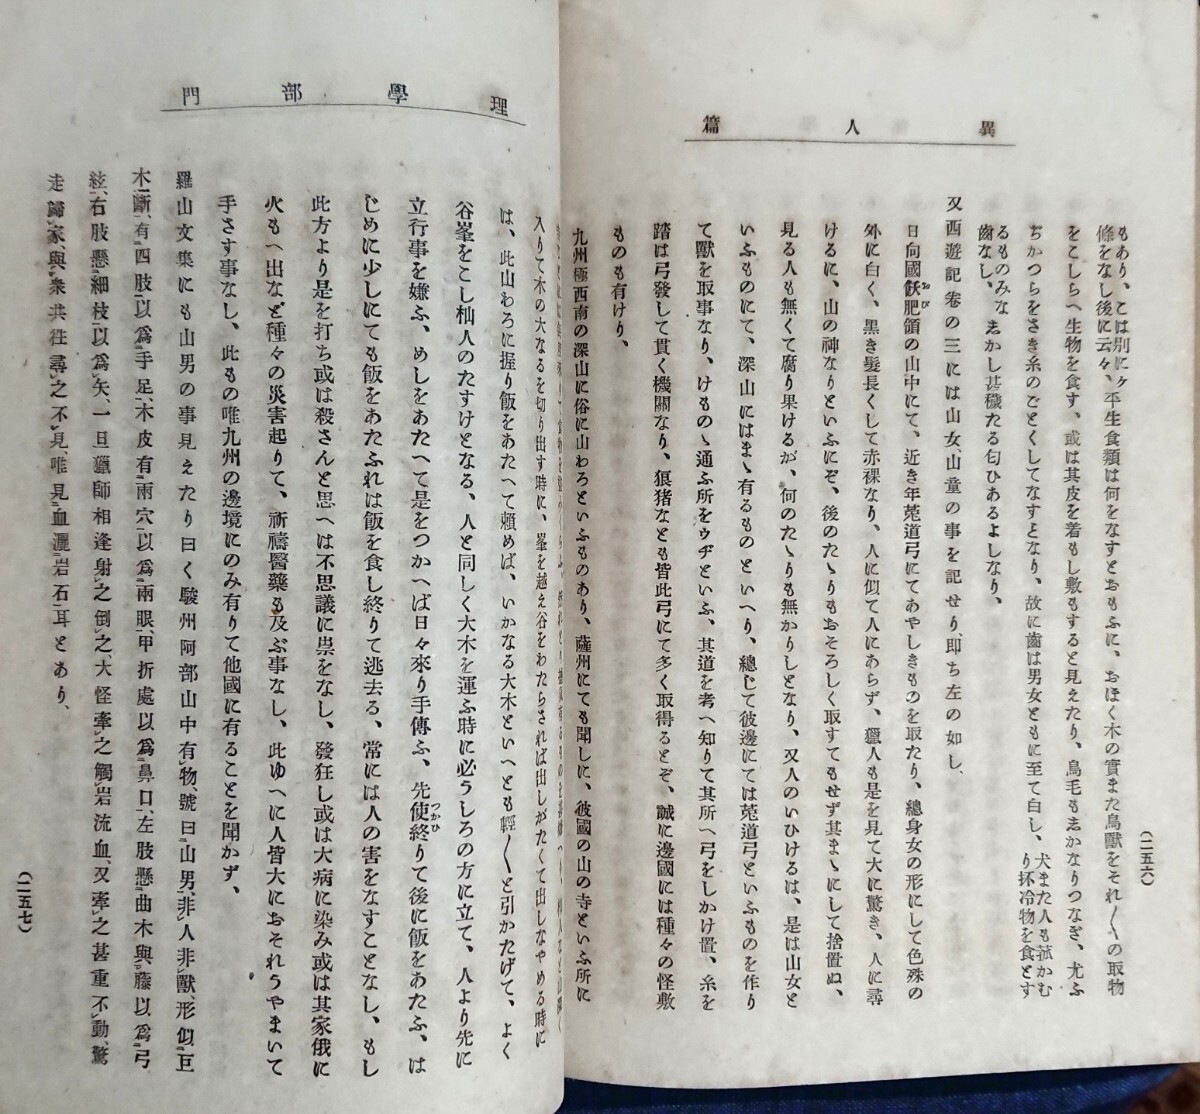 異人篇
もあり、こは別にヶ
條をなし後に云々、平生食類は何をなすとおもふに、おほく木の實また鳥獸をそれ〳〵の取物
をこしらへ生物を食す、或は其皮を着もし敷もすると見えたり、鳥毛も志かなりつなぎ、尤ふ
ぢかつらをさき糸のごとくしてなすとなり、故に齒は男女ともに至て白し、
犬また人も菰かむ
り抔冷物を食とす
るものみな
齒なし、
志かし甚穢たる匂ひあるよしなり、
又西遊記卷の三には山女、山童の事を記せり、即ち左の如し、
日向國飫肥領の山中にて、近き年菟道弓にてあやしきものを取たり、總身女の形にして色殊の
外に白く、黑き髮長くして赤裸なり、人に似て人にあらず、獵人も是を見て大に驚き、人に尋
けるに、山の神なりといふにぞ、後のたゝりもおそろしく取すてもせず其まゝにして捨置ぬ、
見る人も無くて腐り果けるが、何のたゝりも無かりしとなり、又人のいひけるは、是は山女と
いふものにて、深山にはまゝ有るものといへり、總じて彼邊にては菟道弓といふものを作り
て獸を取事なり、けものゝ通ふ所をウヂといふ、其道を考へ知りて其所へ弓をしかけ置、糸を
踏は弓發して貫く機關なり、狼猪なども皆此弓にて多く取得るとぞ、誠に邊國には種々の怪敷
ものも有けり、
九州極西南の深山に俗に山わろといふものあり、薩州にても聞しに、彼國の山の寺といふ所に
(二五六)
理學部門
入りて木の大なるを切り出す時に、峯を越え谷をわたらされば出しがたくて出しなやめる時に
は、此山わろに握り飯をあたへて賴めば、いかなる大木といへとも輕〳〵と引かたげて、よく
谷峯をこし杣人のたすけとなる、人と同しく大木を運ふ時に必うしろの方に立て、人より先に
立行事を嫌ふ、めしをあたへて是をつかへば日々來り手傳ふ、先使終りて後に飯をあたふ、は
じめに少しにても飯をあたふれは飯を食し終りて逃去る、常には人の害をなすことなし、もし
此方より是を打ち或は殺さんと思へは不思議に祟をなし、發狂し或は大病に染み或は其家俄に
火もへ出など種々の災害起りて、祈禱醫藥も及ぶ事なし、此ゆへに人皆大におそれうやまいて
手さす事なし、此もの唯九州の邊境にのみ有りて他國に有ることを聞かず、
羅山文集にも山男の事見えたり曰く駿州阿部山中有物、號曰山男、非人非獸、形似巨
木斷、有四肢以爲手足、木皮有兩穴以爲兩眼、甲折處以爲鼻口、左肢懸曲木與藤以爲弓
絃、右肢懸細枝以爲矢、一旦獵師相逢射之倒之、大怪牽之觸岩流血、又牽之甚重不動、驚
走歸家、與衆共往尋之不見、唯見血灑岩石耳とあり、
(二五七)